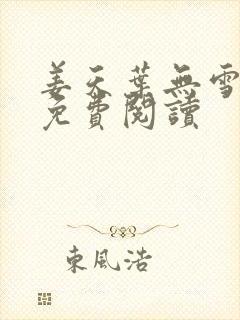 姜天葉無雪
免費閱讀
東風浩